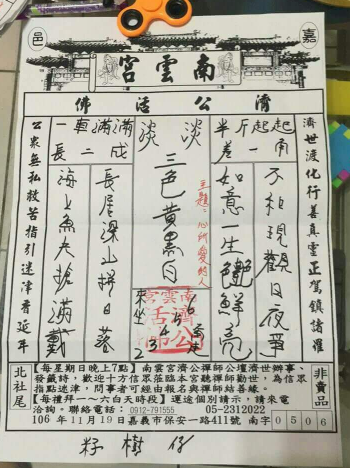 嘉
邑
南雲宮
濟公活佛
濟世渡化行善真靈正駕鎮諸羅
公眾無私救苦指引迷津香延年
半斤起起角
一車滿滿
長二成
淡淡
三色黃黑白
主題：心所愛的人
不和現觀日夜爭
如意一生艷鮮亮
長尾深山拼日落
海上魚夫搶滿載
南雲宮
濟公
活佛
北社尾
【每星期日晚上7點】南雲宮濟公禪師公壇濟世辦事、
發籤詩，歡迎十方信眾蒞臨本宮聽禪師勸世。為信眾
指點迷津，問事者可經生辰八字報名與禪師結善緣。
【每禮拜一~六白天時段】運途個別請示，請來電
洽詢。聯絡電話：0912-791555 05-2312022
106年11月19日嘉義市保安一路411號 南字
非賣品
0506
籽 樹 仔